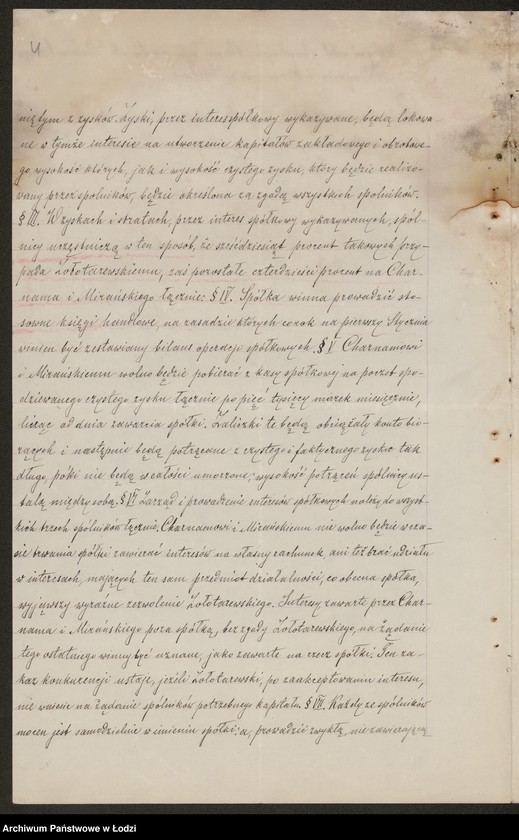 4
nię tym z zysków. Zyski, przez interes spółkowy wykazywane, będą lokowa-
ne w tymże interesie na utworzenie kapitałów zakładowego i obrotowe-
go wysokość których, jak i wysokość czystego zysku, który będzie realizo-
wany przez spólników, będzie określona za zgodą wszystkich spólników.
§ III. W zyskach i stratach, przez interes spółkowy wykazywanych, spól-
nicy uczęstniczą w ten sposób, że sześćdziesiąt procent takowych przy-
pada Zołotarewskiemu, zaś pozostałe czterdzieści procent na Char-
nama i Mirańskiego łącznie: § IV. Spółka winna prowadzić sto-
sowne księgi handlowe, na zasadzie których corok na pierwszy Stycznia
winien być zestawiany bilans operacji spółkowych. § V Charnamowi
i Mirańskiemu wolno będzie pobierać z kasy spółkowej na poczet spo-
dziewanego czystego zysku łącznie po pięć tysięcy marek miesięcznie,
licząc od dnia zawarcia spółki. Zaliczki te będą obciążały konto bie-
rzących i następnie będą potrącone z czystego i faktycznego zysku tak
długo, póki nie będą w całości umorzone; wysokość potrąceń spólnicy us-
talą między sobą. § VI Zarząd i prowadzenie interesów spółkowych należy do wszyst-
kich trzech spólników łącznie. Charnamowi i Mirańskiemu nie wolno będzie w cza-
sie trwania spółki zawierać interesów na własny rachunek, ani też brać udziału
w interesach, mających ten sam przedmiot działalności, co obecna spółka,
wyjąwszy wyraźne zezwolenie Zołotarewskiego. Interesy zawarte przez Char-
nama i Mirańskiego poza spółką, bez zgody Zołotarewskiego, na żądanie
tego ostatniego winny być uznane, jako zawarte na rzecz spółki. Ten za-
kaz konkurencji ustaje, jeżeli Zołotarewski, po zaakceptowaniu interesu,
nie wniesie na żądanie spólników potrzebnego kapitału. § VII. Każdy ze spólników
mocen jest samodzielnie w imieniu spółki: a, prowadzić zwykłą, nie zawierającą
Archiwum Państwowe w Łodzi